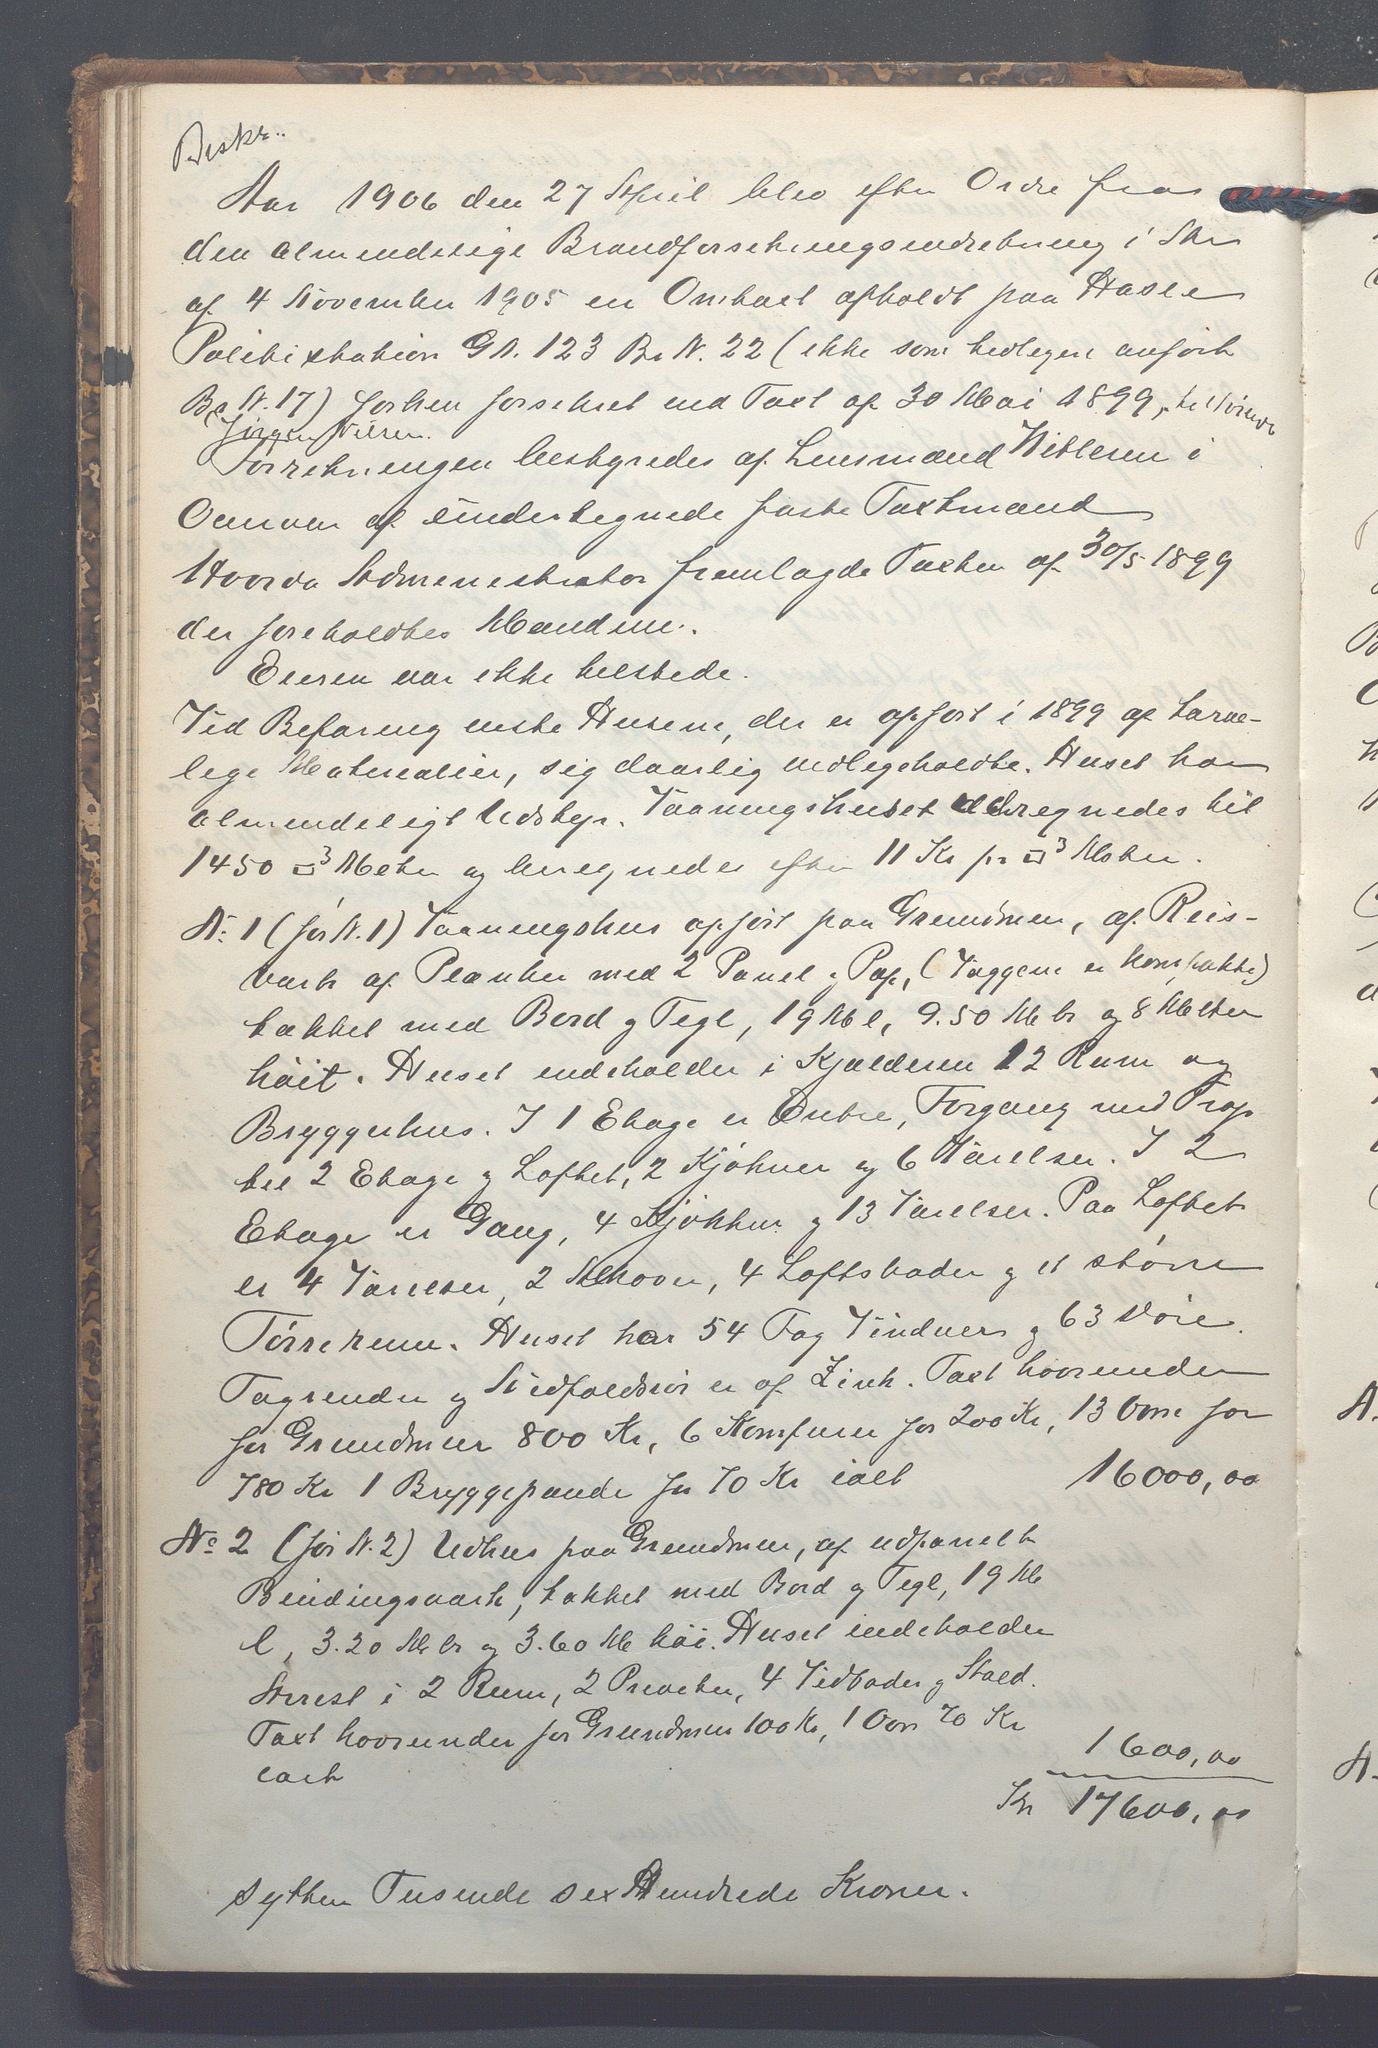 Beskr..
Aar 1906 den 27 April blev efter Ordre fra
den almindelige Brandforsikringsindretning i Skr
af 4 November 1905 en Omtaxt afholdt paa Hasle
Politistation G.N. 123 Br N. 22 (ikke som tidligere anført
Br N. 17) forhen forsikret ved Taxt af 30 Mai 1899, tilhørende
Jørgen Nilsen.
Forretningen bestyredes af Lensmand Wiblesen i
Overvær af undertegnede faste Taxtmænd
Hvorda Administrator fremlagde Taxten af 30/5 1899
der foreholdtes Mændene.
Eieren var ikke tilstede.
Ved Befaring viste Husene, der er opført i 1899 af tarve-
lige Materialier, sig daarlig vedligeholdte. Huset har
almindeligt Udstyr. Vaaningshuset udregnedes til
1450 □3 Meter og beregnedes efter 11 Kr pr □3 Meter.
No 1 (før N. 1) Vaaningshus opført paa Grundmur, af Reis-
værk af Planker med 2 Panel & Pap, (Væggene er kompakte)
tækket med Bord & Tegl, 19 M l, 9.50 M br og 8 Meter
høit. Huset indeholder i Kjælderen 12 Rum og
Bryggerhus. I 1 Etage er Entre, Forgang med Trap
til 2 Etage & Loftet, 2 Kjøkner og 6 Værelser. I 2
Etage er Gang, 4 Kjøkkner & 13 Værelser. Paa Loftet
er 4 Værelser, 2 Alkover, 4 Loftsboder & et større
Tørrerum. Huset har 54 Fag Vinduer & 63 Døre.
Tagrender & Nedfaldsrør er af Zink. Taxt hvorunder
for Grundmur 800 Kr, 6 Komfurer for 200 Kr, 13 Ovne for
780 Kr 1 Bryggepande for 70 Kr ialt 16000,00
No 2 (før N. 2) Udhus paa Grundmur, af udpanelt
Bindingsværk, tækket med Bord & Tegl, 19 M
l, 3.20 M br og 3.60 M høi. Huset indeholder
i 2 Rum, 2 Priveter, 4 Vedboder & Stald.
Taxt hvorunder for Grundmur 100 Kr, 1 Ovn 70 Kr
ialt 1600,00
Kr 17600,00
sytten Tusende sex Hundrede Kroner.